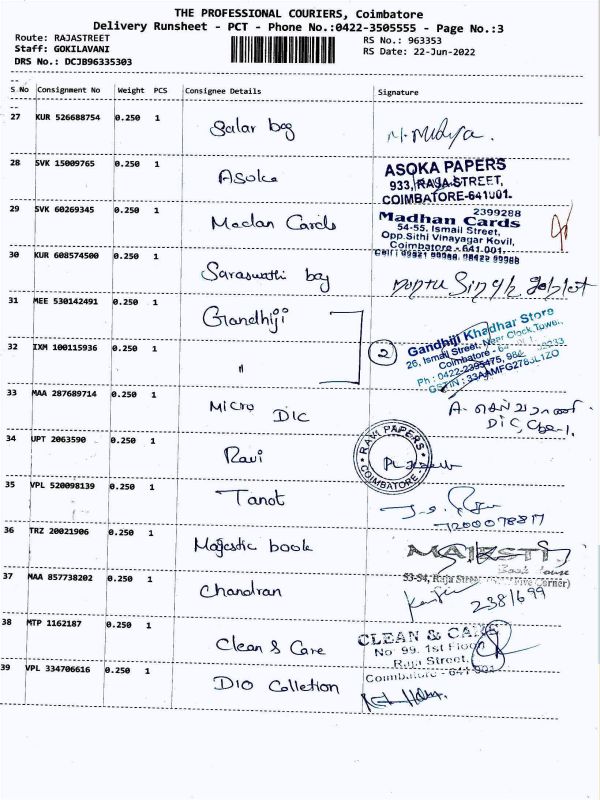 THE PROFESSIONAL COURIERS, Coimbatore
Delivery Runsheet - PCT - Phone No.:0422-3505555 - Page No.:3
Route: RAJASTREET
RS No.: 963353
Staff: GOKILAVANI
RS Date: 22-Jun-2022
DRS No.: DCJB96335303
S.No Consignment No Weight PCS Consignee Details Signature
27 KUR 526688754 0.250 1 Salar bag
28 SVK 15009765 0.250 1 Asoka
ASOKA PAPERS
933, RAJA STREET,
COIMBATORE-641001.
29 SVK 60269345 0.250 1 Madan Cards
2399288
Madhan Cards
54-55, Ismail Street,
Opp.Sithi Vinayagar Kovil,
Coimbatore - 641 001.
30 KUR 608574500 0.250 1 Saraswathi bag
31 MEE 530142491 0.250 1 Gandhiji
32 IXM 100115936 0.250 1 "
2
Gandhiji Khadhar Store
26, Ismail Street, Near Clock Tower,
Coimbatore -
33 MAA 287689714 0.250 1 Micro DIC
DIC, Cbe-1.
34 UPT 2063590 0.250 1 Ravi
RAVI PAPERS
COIMBATORE
35 VPL 520098139 0.250 1 Tanot
36 TRZ 20021906 0.250 1 Majestic book
MAJESTI
Book House
53-54, Raja Street
Five Corner)
37 MAA 857738202 0.250 1 Chandran
38 MTP 1162187 0.250 1 Clean & Care
CLEAN & CARE
No 99. 1st Floor
Raja Street.
Coimbatore - 641 001
39 VPL 334706616 0.250 1 DIO Colletion